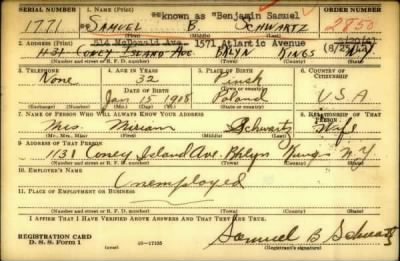 SERIAL NUMBER 1. NAME (Print) **known as "Benjamin Samuel ORDER NUMBER
1771 SAMUEL B. SCHWARTZ 2850
(First) (Middle) (Last)
2. ADDRESS (Print) 514 McDonald Ave. 1571 Atlantic Avenue
1131 CONEY ISLAND AVE BKLYN KINGS (8/25/42)
(Number and street or R. F. D. number) (Town) (County) (State)
3. TELEPHONE 4. AGE IN YEARS 5. PLACE OF BIRTH 6. COUNTRY OF CITIZENSHIP
None 32 Pinsk
DATE OF BIRTH (Town or county)
Jan 15 1908 Poland U S A
(Exchange) (Number) (Mo.) (Day) (Yr.) (State or country)
7. NAME OF PERSON WHO WILL ALWAYS KNOW YOUR ADDRESS 8. RELATIONSHIP OF THAT PERSON
Mrs. Miriam Schwartz Wife
(Mr., Mrs., Miss) (First) (Middle) (Last)
9. ADDRESS OF THAT PERSON
1131 Coney Island Ave. Bklyn Kings N Y
(Number and street or R. F. D. number) (Town) (County) (State)
10. EMPLOYER'S NAME
Unemployed
11. PLACE OF EMPLOYMENT OR BUSINESS
(Number and street or R. F. D. number) (Town) (County) (State)
I AFFIRM THAT I HAVE VERIFIED ABOVE ANSWERS AND THAT THEY ARE TRUE.
REGISTRATION CARD
D. S. S. Form 1 16—17135 Samuel B Schwartz
(Registrant's signature)